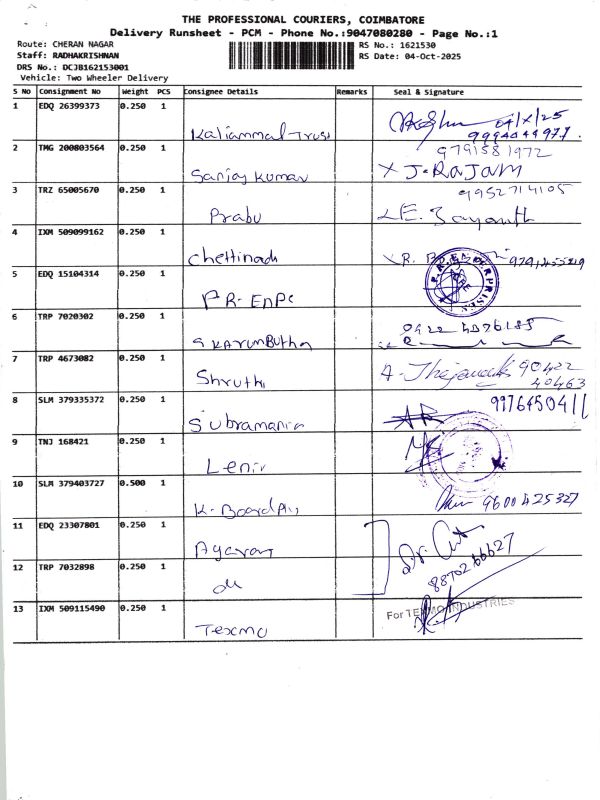 THE PROFESSIONAL COURIERS, COIMBATORE
Delivery Runsheet - PCM - Phone No.:9047080280 - Page No.:1
Route: CHERAN NAGAR RS No.: 1621530
Staff: RADHAKRISHNAN RS Date: 04-Oct-2025
DRS No.: DCJB162153001
Vehicle: Two Wheeler Delivery
S No Consignment No Weight PCS Consignee Details Remarks Seal & Signature
1 EDQ 26399373 0.250 1 Kaliammal Trust 04/X/25
2 TMG 200803564 0.250 1 Sanjay Kumar 9791581972
X J.RAJAM
3 TRZ 65005670 0.250 1 Prabu 9952714105
E. Jayanth
4 IXM 509099162 0.250 1 Chettinadu
5 EDQ 15104314 0.250 1 PR-EnPC
6 TRP 7020302 0.250 1 0422 4076185
7 TRP 4673082 0.250 1 Shruthi 90422
40463
8 SLM 379335372 0.250 1 Subramania
9 TNJ 168421 0.250 1
10 SLM 379403727 0.500 1 K-Board 9600425327
11 EDQ 23307801 0.250 1 Dr.
12 TRP 7032898 0.250 1 8870266627
13 IXM 509115490 0.250 1 Texmo For TEXMO INDUSTRIES